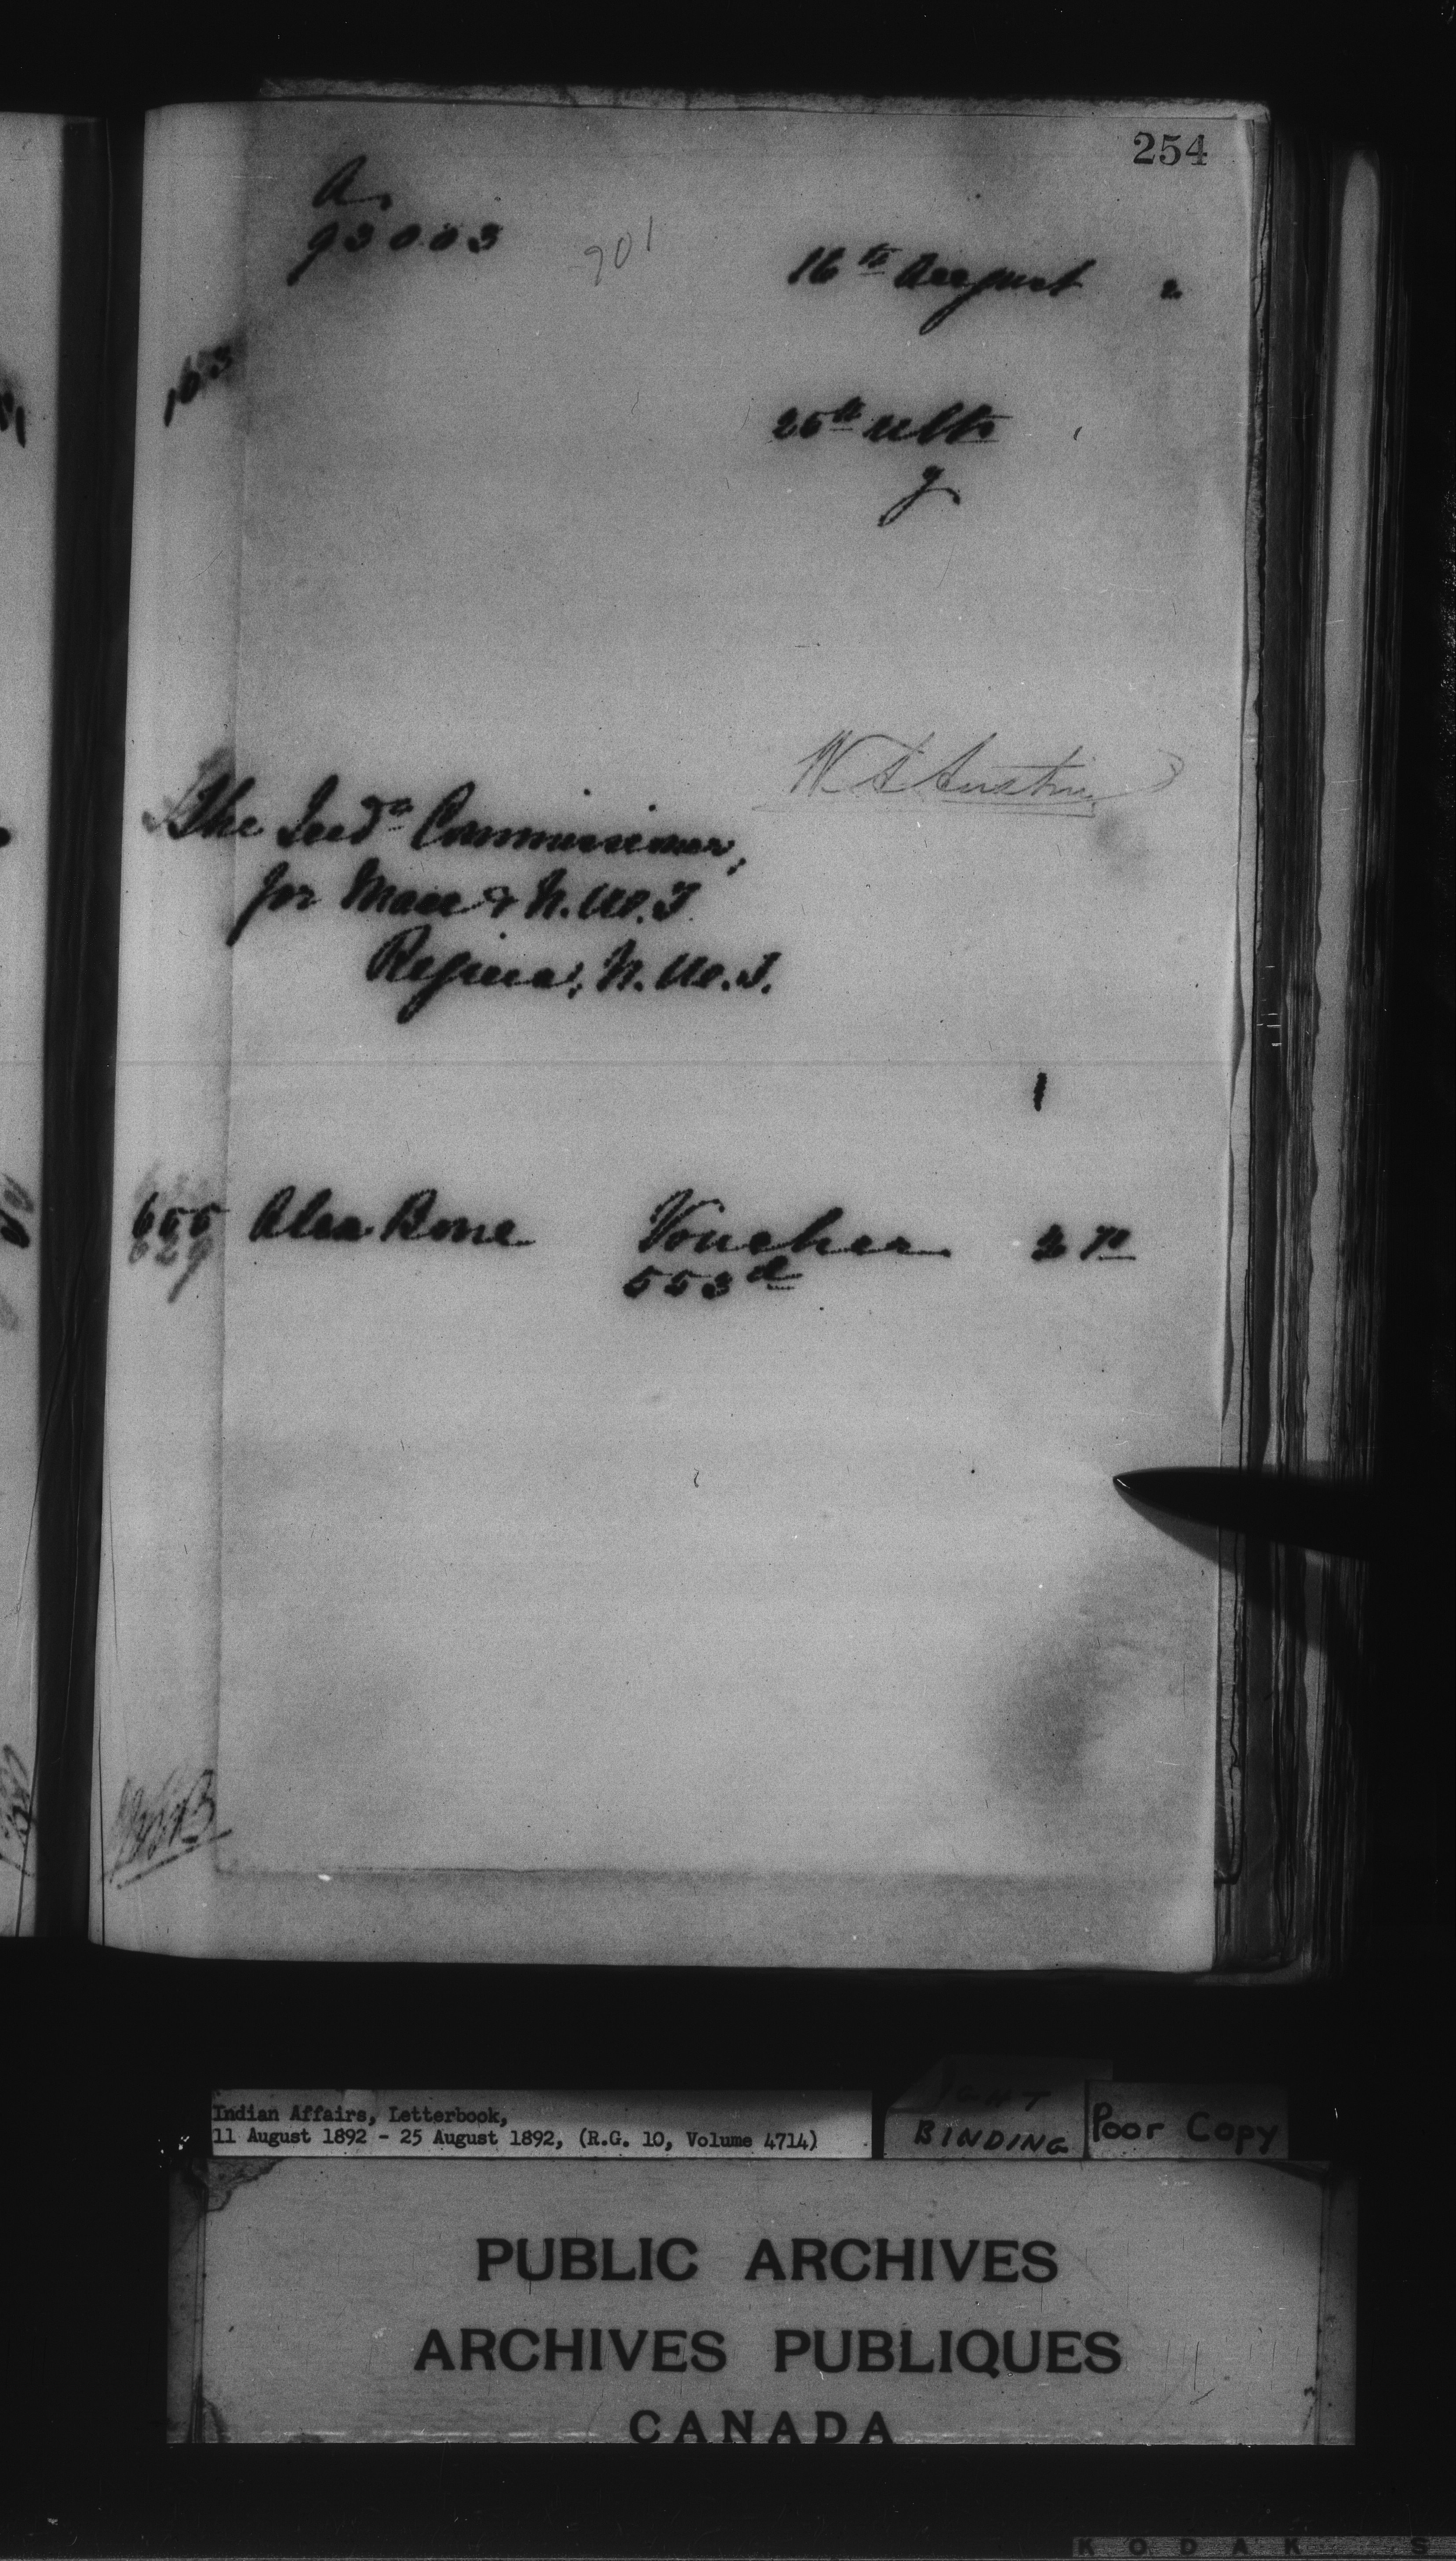 254
A.
93003
901
16th August 2
163
25th ulto
g
W A Austin
The Indn Commissioner,
for Man & N.W.T
Regina, N.W.T.
1
655 Alex Bone Voucher 2 70
629
553d
Indian Affairs, Letterbook,
11 August 1892 - 25 August 1892, (R.G. 10, Volume 4714)
BINDING
Poor Copy
PUBLIC ARCHIVES
ARCHIVES PUBLIQUES
CANADA
KODAK S